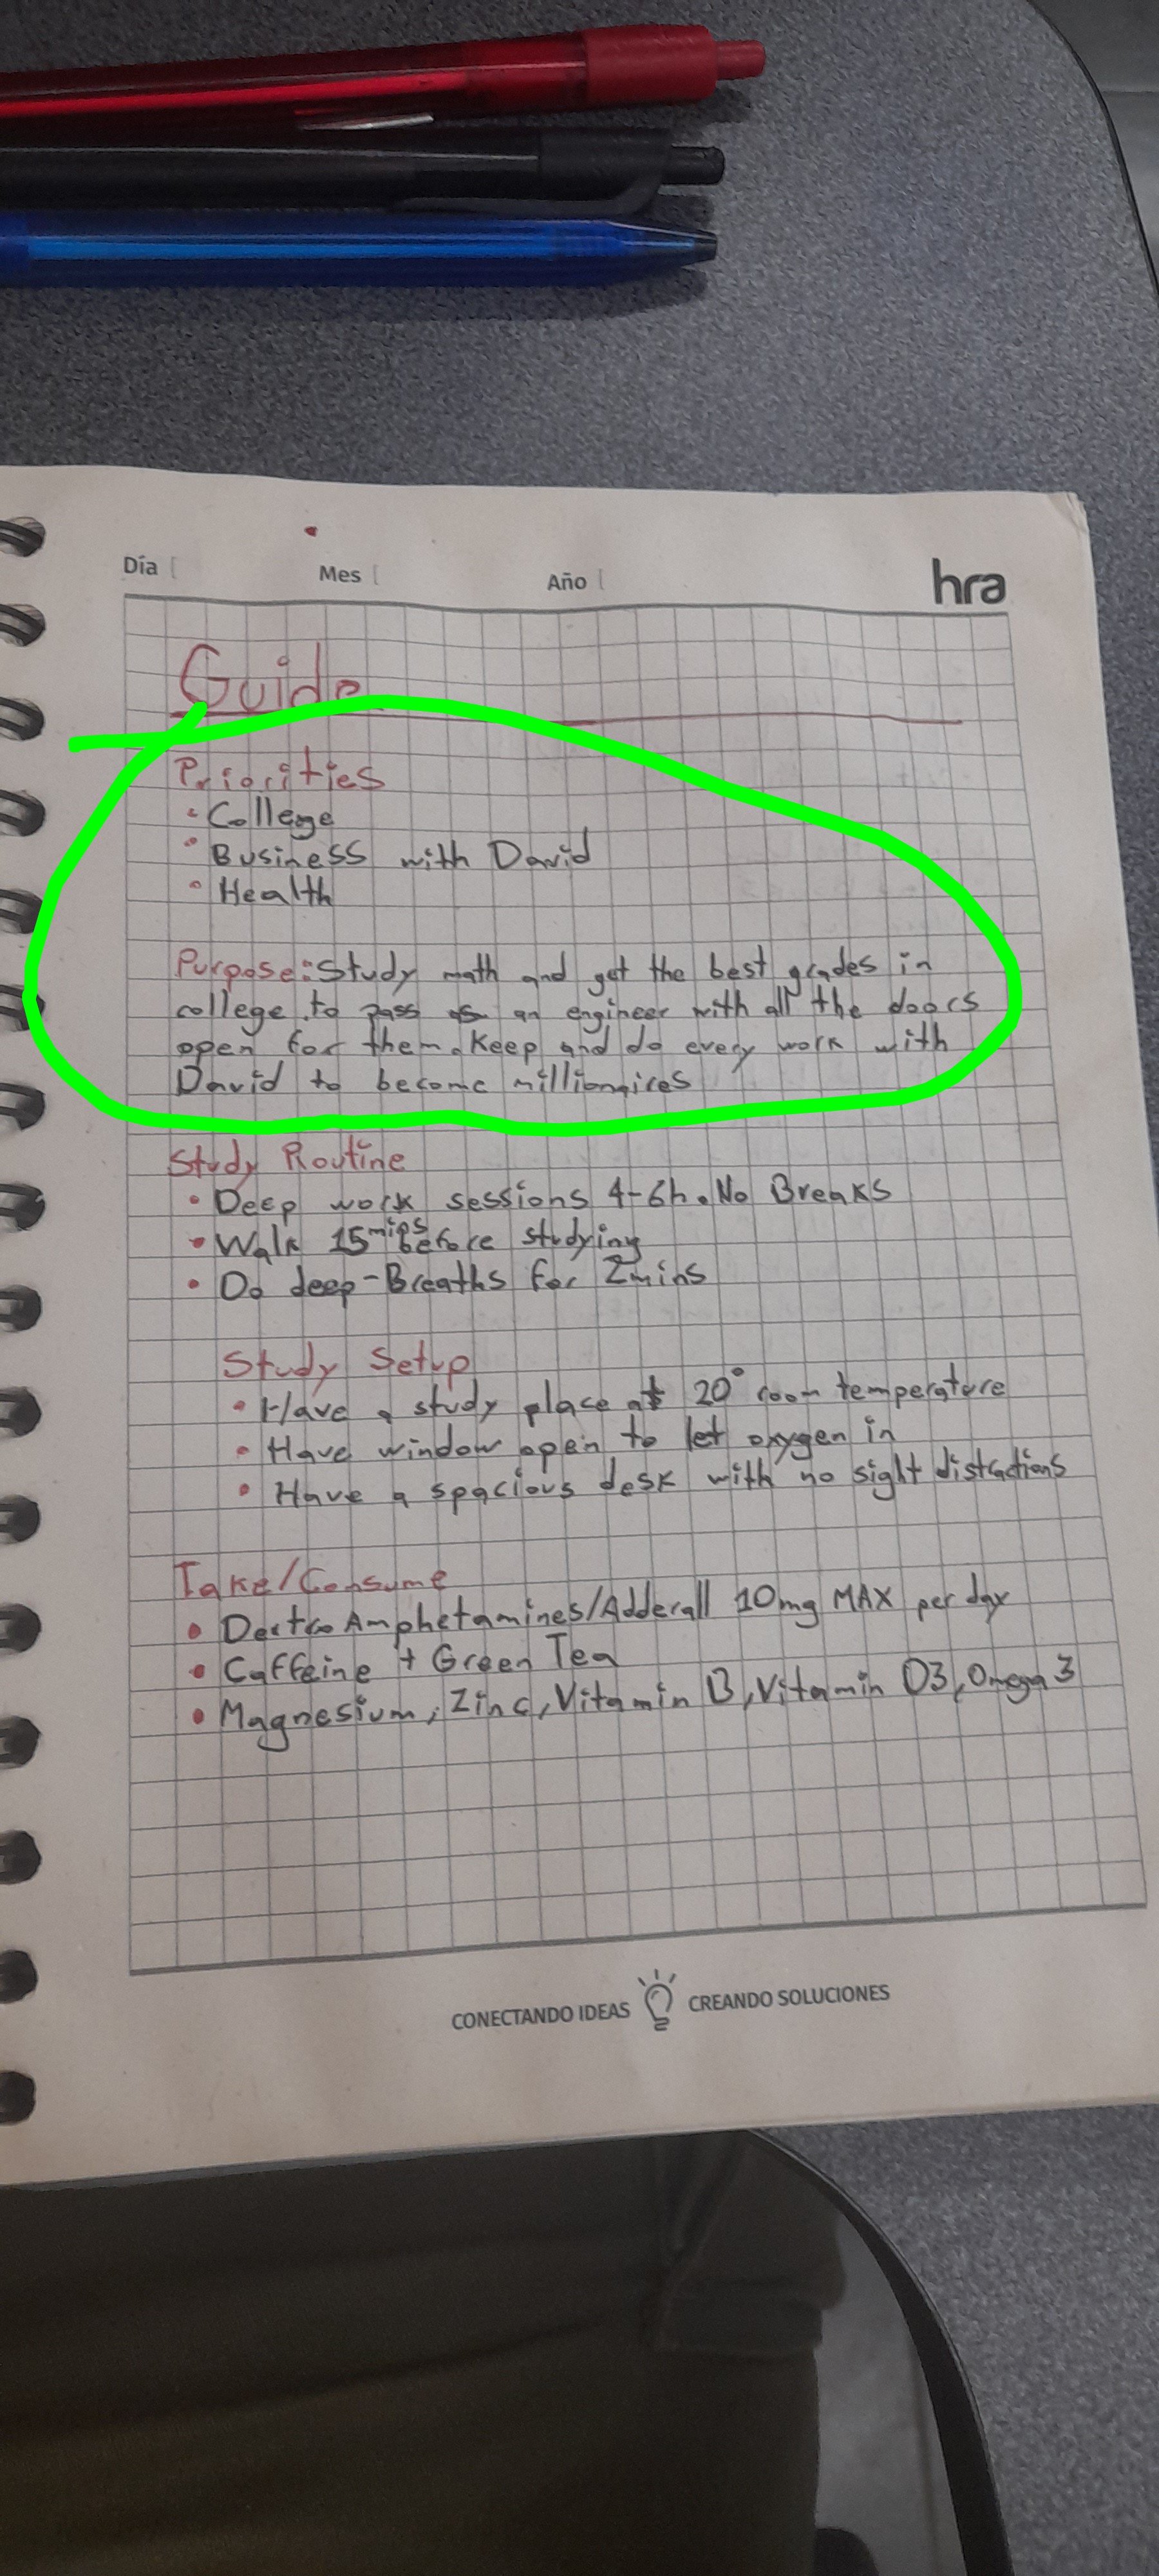 Día Mes Año hra
Guide
Priorities
• College
• Business with David
• Health
Purpose: Study math and get the best grades in
college to pass as an engineer with all the doors
open for them. Keep and do every work with
David to become millionaires
Study Routine
• Deep work sessions 4-6h. No Breaks
• Walk 15mins before studying
• Do deep-Breaths for 2mins
Study Setup
• Have a study place at 20° room temperature
• Have window open to let oxygen in
• Have a spacious desk with no sight distractions
Take/Consume
• Dextro Amphetamines/Adderall 10mg MAX per day
• Caffeine + Green Tea
• Magnesium, Zinc, Vitamin B, Vitamin D3, Omega 3
CONECTANDO IDEAS CREANDO SOLUCIONES